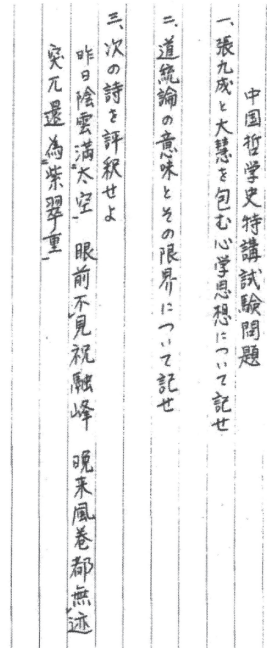 中国哲学史特講試験問題
一、張九成と大慧を包む心学思想について記せ
二、道統論の意味とその限界について記せ
三、次の詩を評釈せよ
昨日陰雲満太空　眼前不見祝融峰　晩来風巻都無迹
突兀還為紫翠重